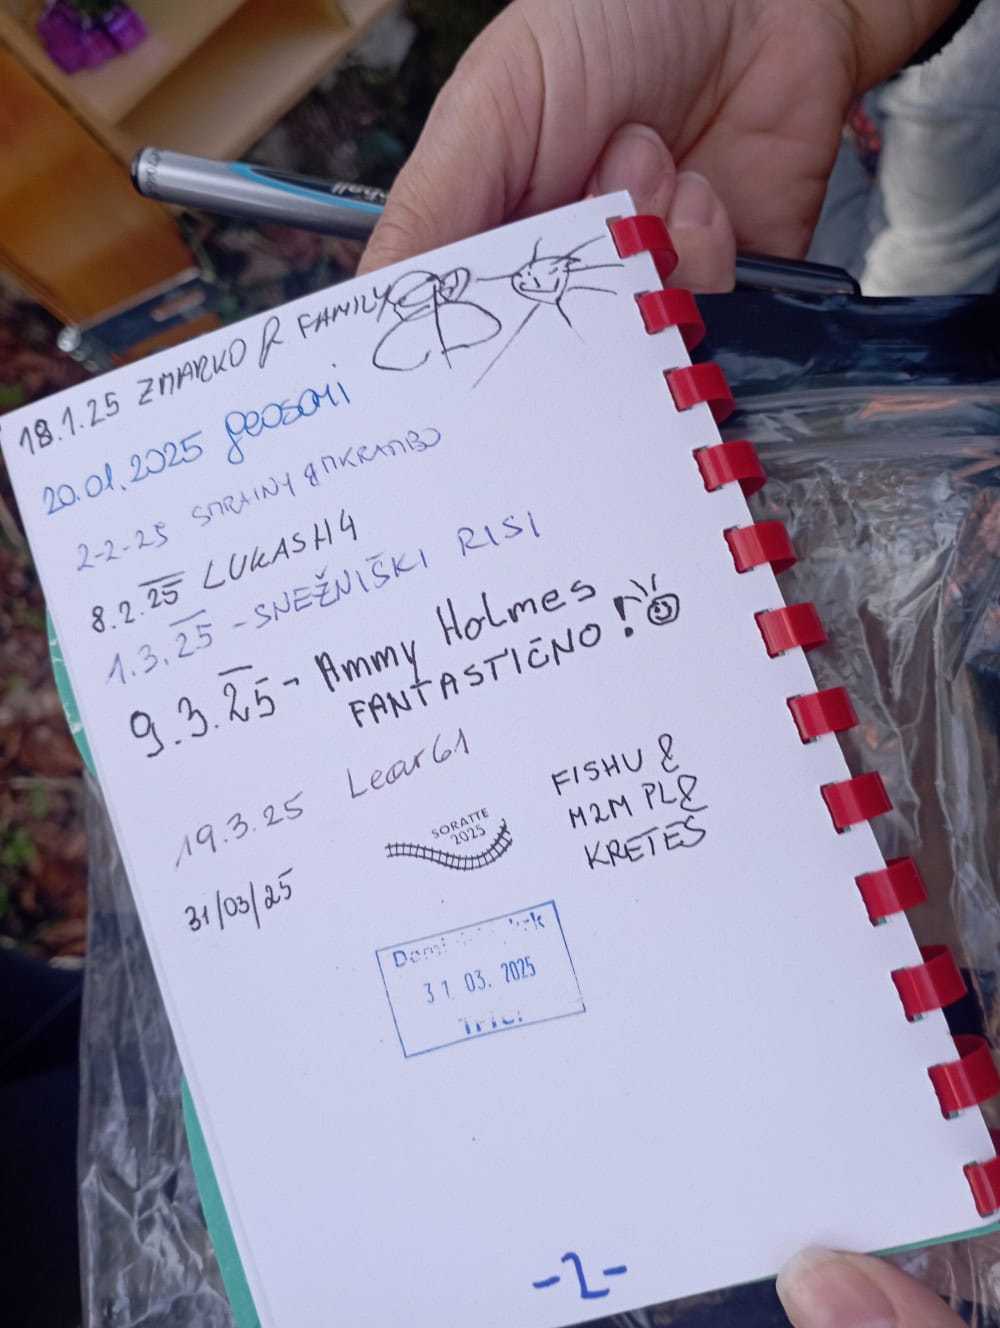 18.1.25 ZMARKO & FAMILY
20.01.2025 geosomi
2-2-25
8.2.25 LUKASH4
1.3.25 - SNEŽNIŠKI RISI
9.3.25 - Ammy Holmes
FANTASTIČNO!
19.3.25 Lear61
SORATTE
2025
31/03/25
FISHU &
M2M PL &
KRETES
31. 03. 2025
-2-